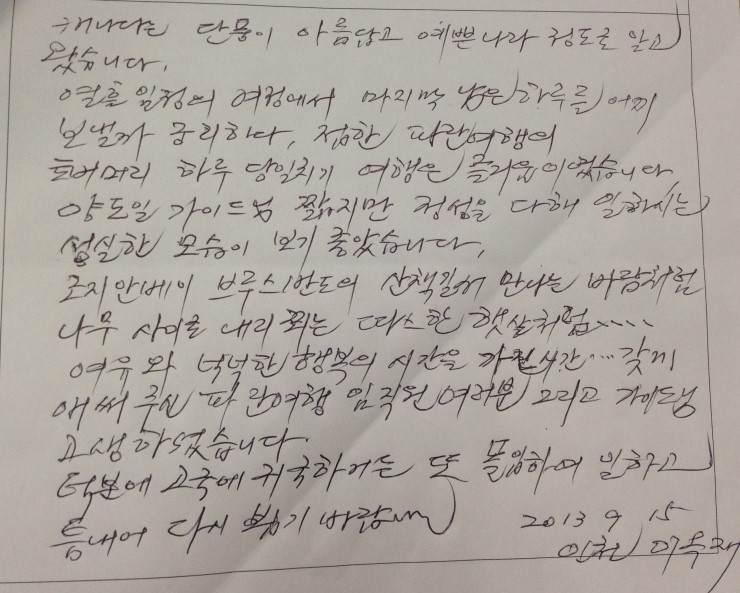 캐나다는 단풍이 아름답고 예쁜나라 정도로 알고
왔습니다.
열흘 일정의 여정에서 마지막 남은 하루를 어찌
보낼까 궁리하다, 접한 파란여행의
토버머리 하루 당일치기 여행은 즐거움이었습니다
양도일 가이드님 짧지만 정성을 다해 일하시는
성실한 모습이 보기 좋았습니다,
조지안베이 브루스반도의 산책길서 만나는 바람처럼
나무 사이로 내리 쬐는 따스한 햇살처럼....
여유와 넉넉한 행복의 시간을 가진시간...갖게
애써 주신 파란여행 임직원 여러분 그리고 가이드님
고생하셨습니다
덕분에 고국에 귀국하거든 또 몰입하여 일하고
틈내어 다시 뵙기 바랍니다
2013 9 15
인천